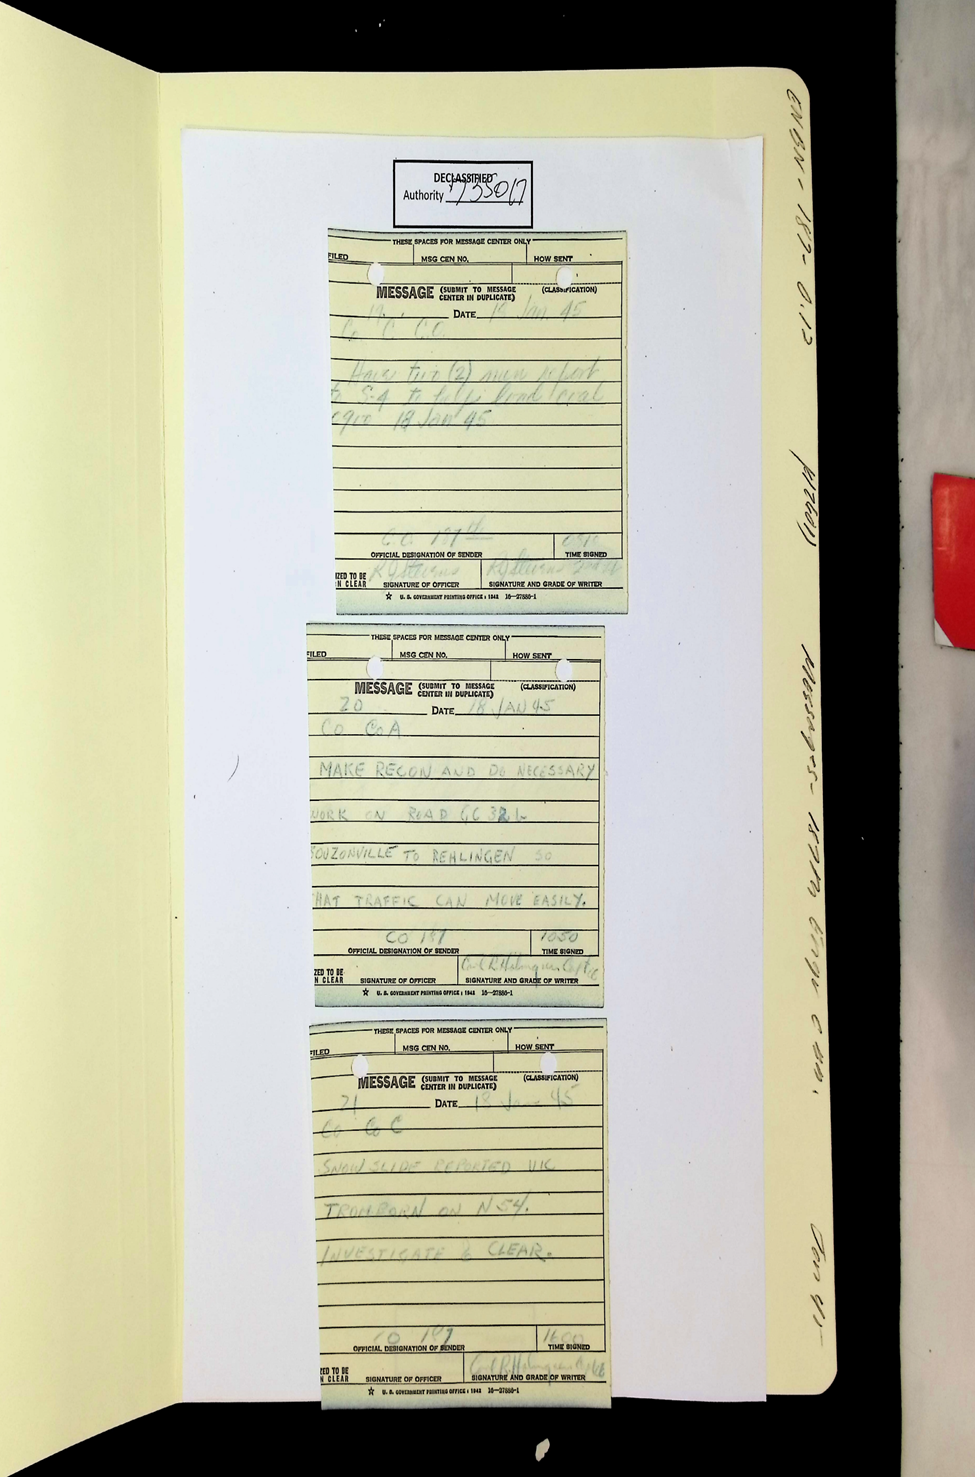 DECLASSIFIED
Authority 735017
THESE SPACES FOR MESSAGE CENTER ONLY
FILED MSG CEN NO. HOW SENT
MESSAGE (SUBMIT TO MESSAGE CENTER IN DUPLICATE) (CLASSIFICATION)
19 DATE 18 Jan 45
Co C C.O.
Have two (2) men report
to S-4 to help load coal
0900 18 Jan 45
C.O. 187th
OFFICIAL DESIGNATION OF SENDER TIME SIGNED
IZED TO BE
N CLEAR SIGNATURE OF OFFICER SIGNATURE AND GRADE OF WRITER
☆ U. S. GOVERNMENT PRINTING OFFICE : 1942 16—27886-1
THESE SPACES FOR MESSAGE CENTER ONLY
FILED MSG CEN NO. HOW SENT
MESSAGE (SUBMIT TO MESSAGE CENTER IN DUPLICATE) (CLASSIFICATION)
20 DATE 18 JAN 45
CO CO A
MAKE RECON AND DO NECESSARY
WORK ON ROAD GC
BOUZONVILLE TO REHLINGEN SO
HAT TRAFFIC CAN MOVE EASILY.
CO 187 1050
OFFICIAL DESIGNATION OF SENDER TIME SIGNED
Carl R. Holmgren Capt CE
ZED TO BE
N CLEAR SIGNATURE OF OFFICER SIGNATURE AND GRADE OF WRITER
☆ U. S. GOVERNMENT PRINTING OFFICE : 1942 16—27886-1
THESE SPACES FOR MESSAGE CENTER ONLY
FILED MSG CEN NO. HOW SENT
MESSAGE (SUBMIT TO MESSAGE CENTER IN DUPLICATE) (CLASSIFICATION)
21 DATE 18 Jan 45
Co Co C
SNOW SLIDE REPORTED VIC
TROMBORN ON N 54.
INVESTIGATE & CLEAR.
CO 187 1600
OFFICIAL DESIGNATION OF SENDER TIME SIGNED
Carl R. Holmgren Capt CE
ZED TO BE
N CLEAR SIGNATURE OF OFFICER SIGNATURE AND GRADE OF WRITER
☆ U. S. GOVERNMENT PRINTING OFFICE : 1942 16—27886-1
ENBN - 187- 0.13
Messages- 187th Engr C Bn.
Jan 45